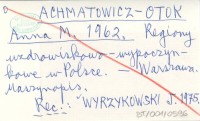 ACHMATOWICZ-OTOK
Anna M. 1962. Regiony
uzdrowiskowo-wypoczyn-
kowe w Polsce. — Warszawa.
Maszynopis.
Rec.: WYRZYKOWSKI J. 1975.